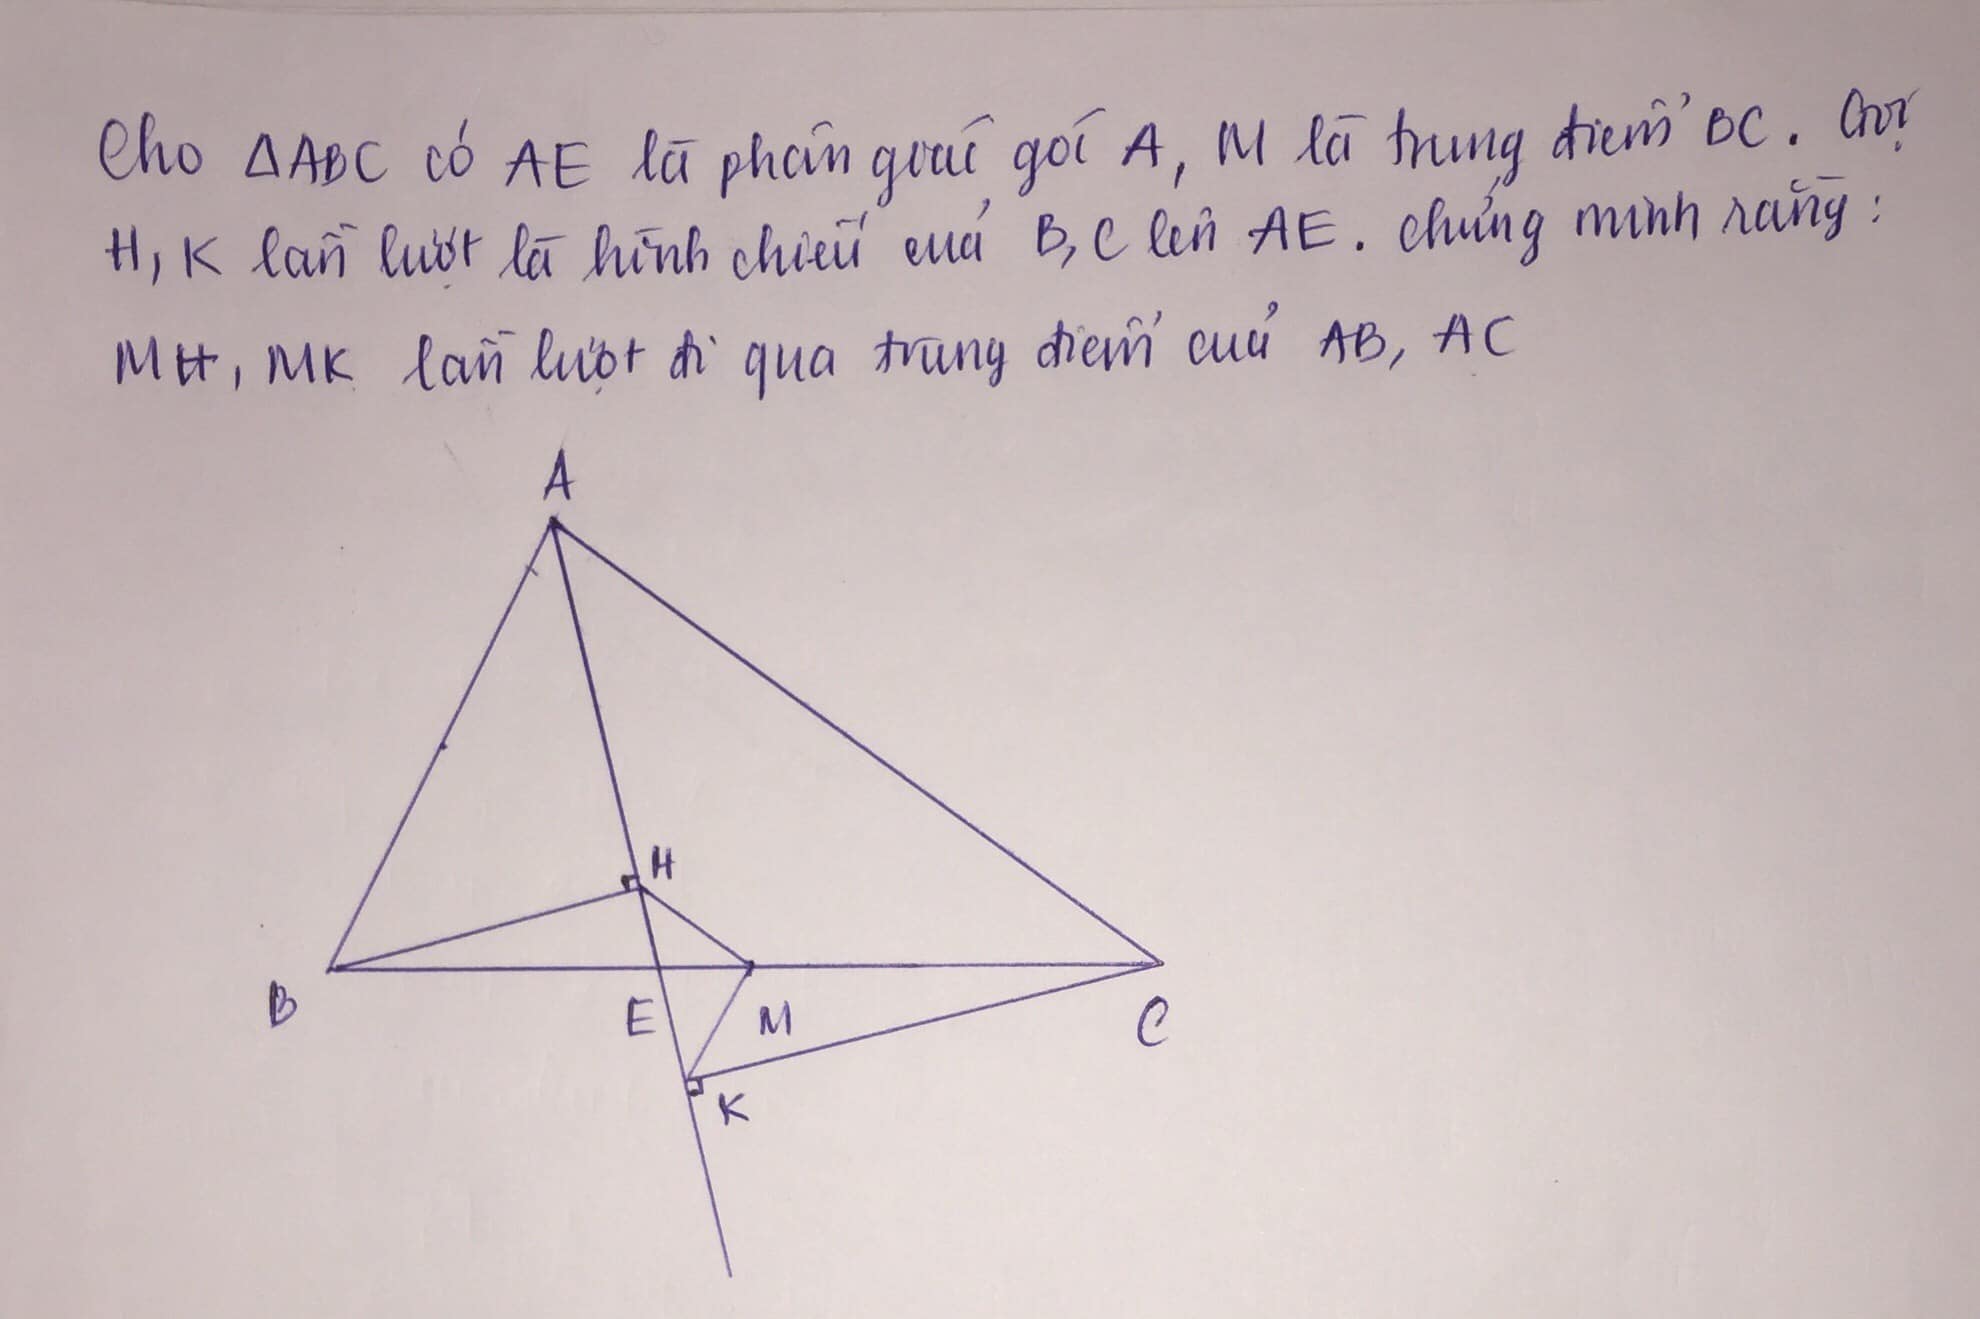 Cho ΔABC có AE là phân giác góc A, M là trung điểm BC. Gọi
H, K lần lượt là hình chiếu của B, C lên AE. chứng minh rằng:
MH, MK lần lượt đi qua trung điểm của AB, AC
A
H
B
E
M
C
K